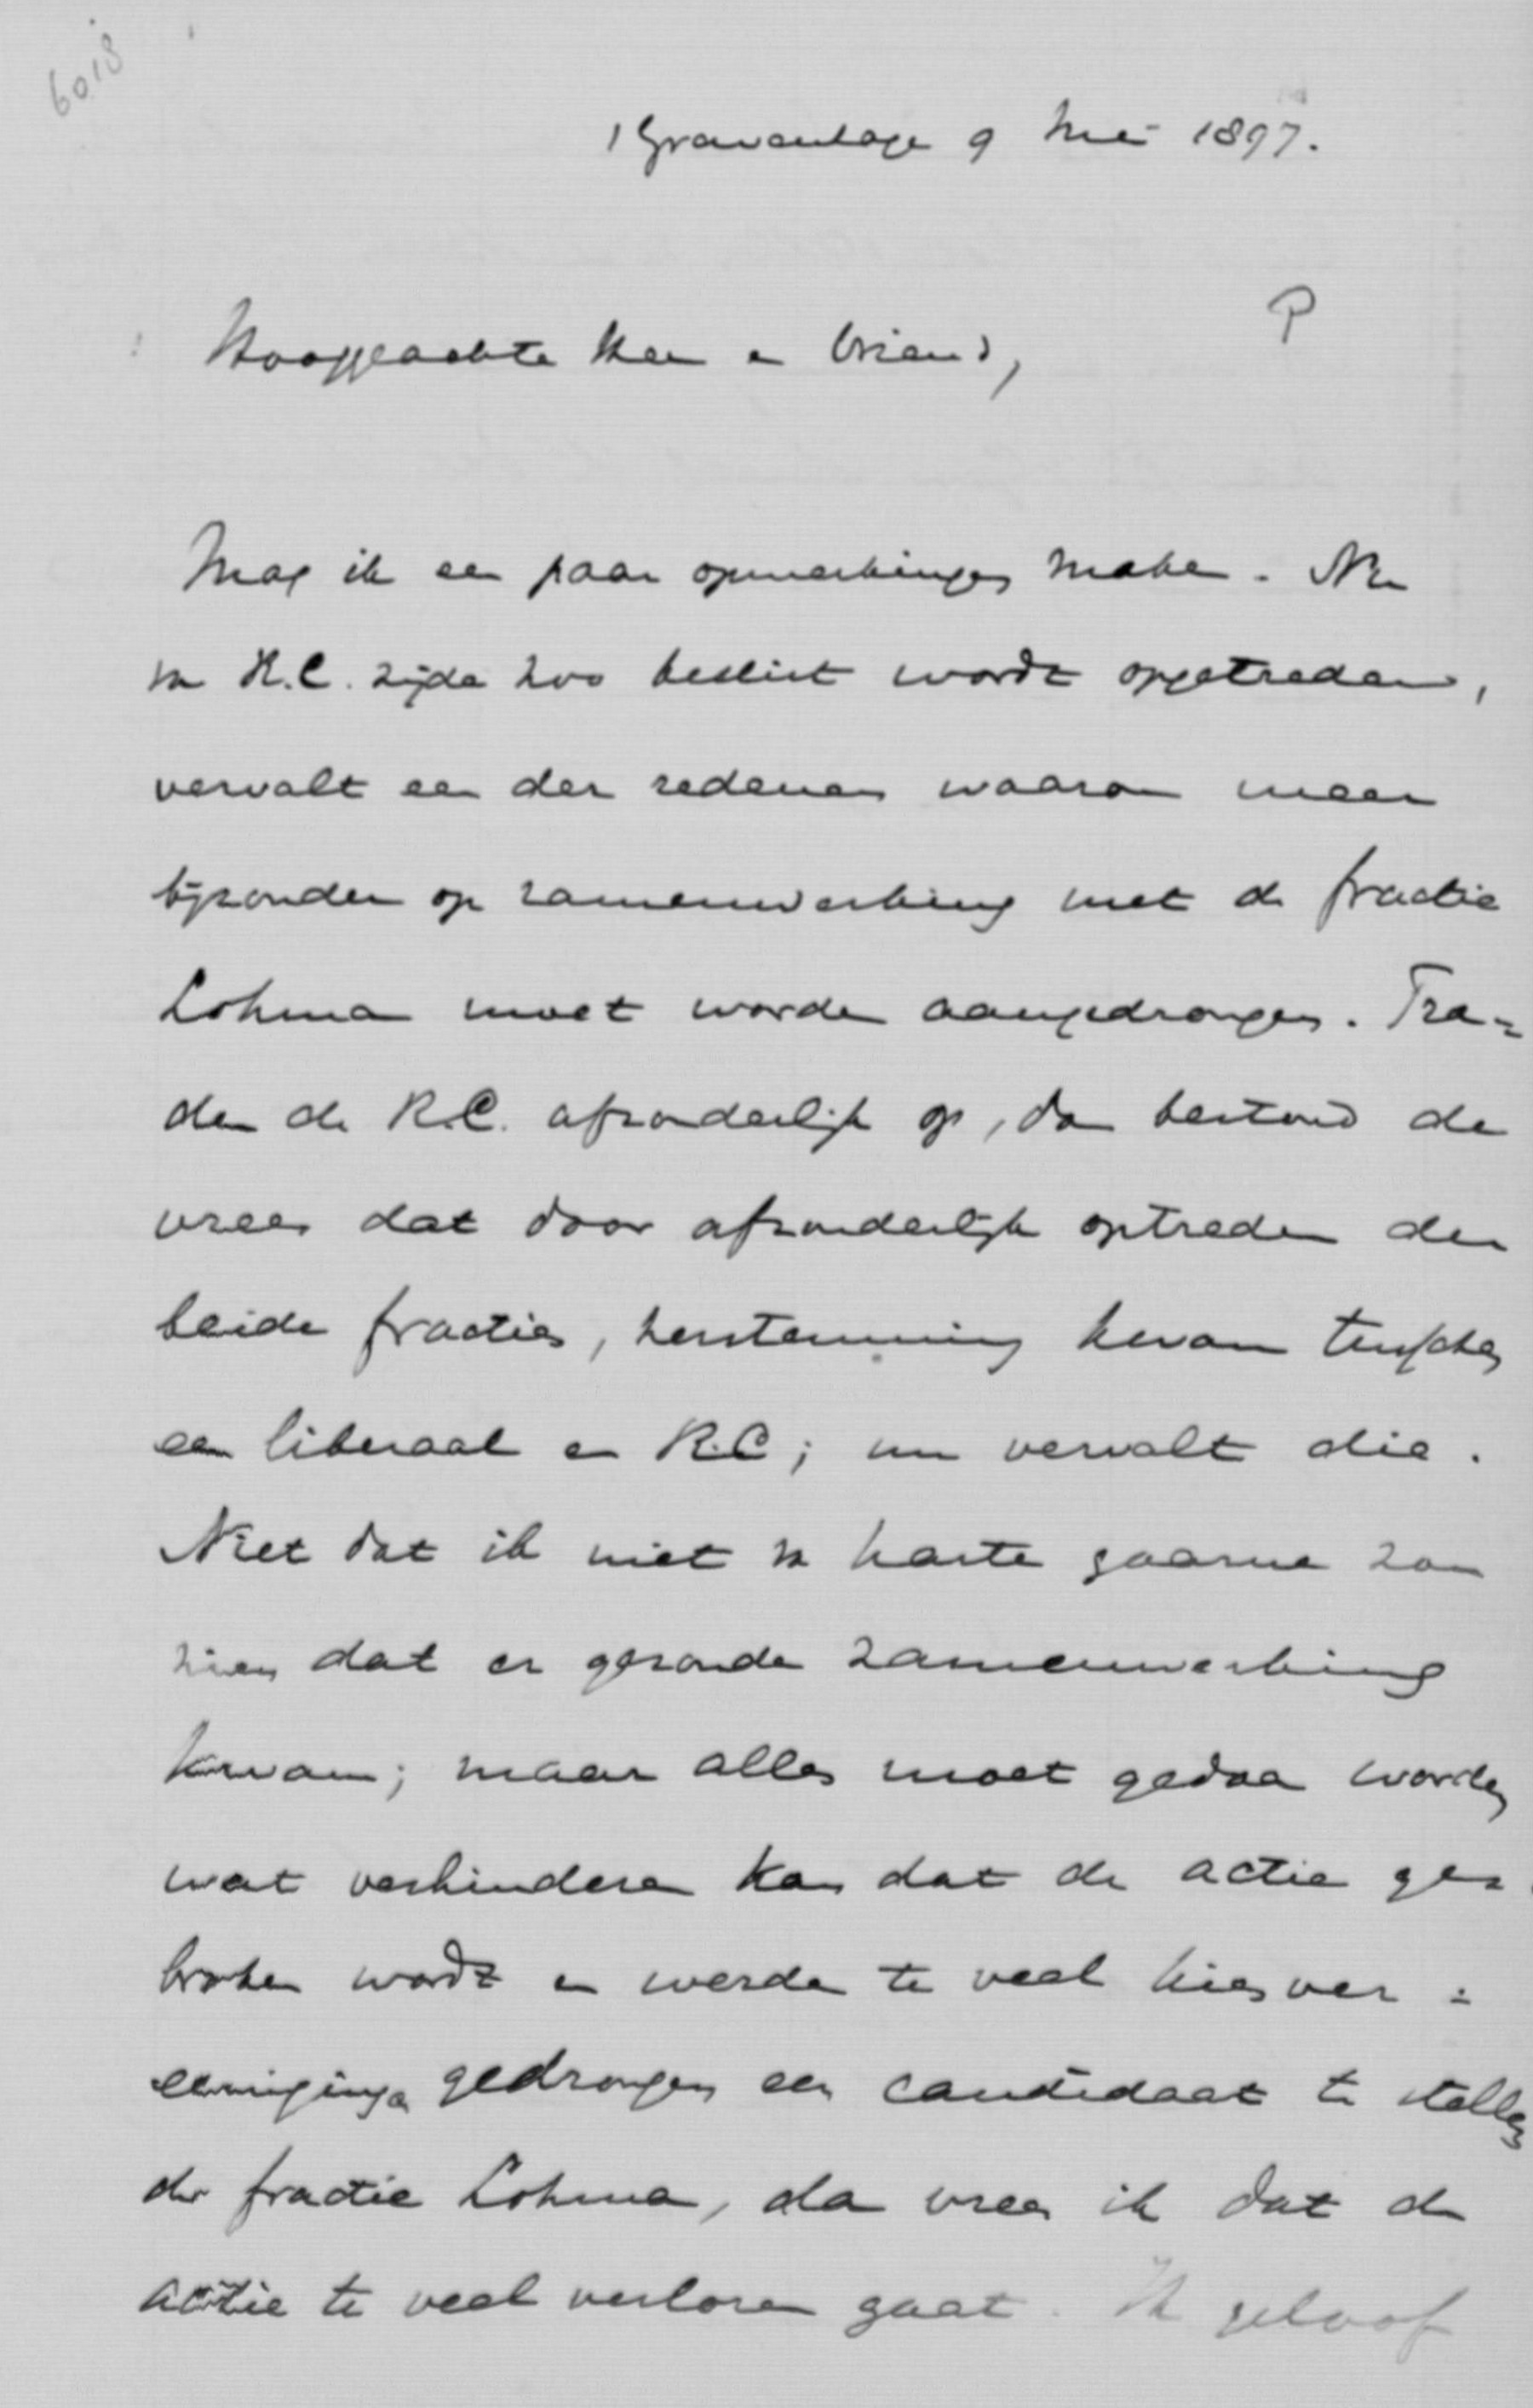 6018
'sGravenhage 9 Mei 1897.
P
Hooggeachte Heer en Vriend,
Mag ik een paar opmerkingen maken. Nu
van R.C. zijde zoo beslist wordt opgetreden,
vervalt een der redenen waarom meer
bijzonder op zamenwerking met de fractie
Lohman moet worden aangedrongen. Tra=
den de R.C. afzonderlijk op, dan bestond de
vrees dat door afzonderlijk optreden der
beide fracties, herstemming kwam tusschen
een liberaal en R.C; nu vervalt die.
Niet dat ik niet van harte gaarne zou
zien dat er gezonde zamenwerking
kwam; maar alles moet gedaan worden
wat verhinderen kan dat de actie ge=
broken wordt en werden te veel kiesver=
eenigingen gedrongen een candidaat te stellen
der fractie Lohman, dan vrees ik dat de
actie te veel verloren gaat. Ik geloof